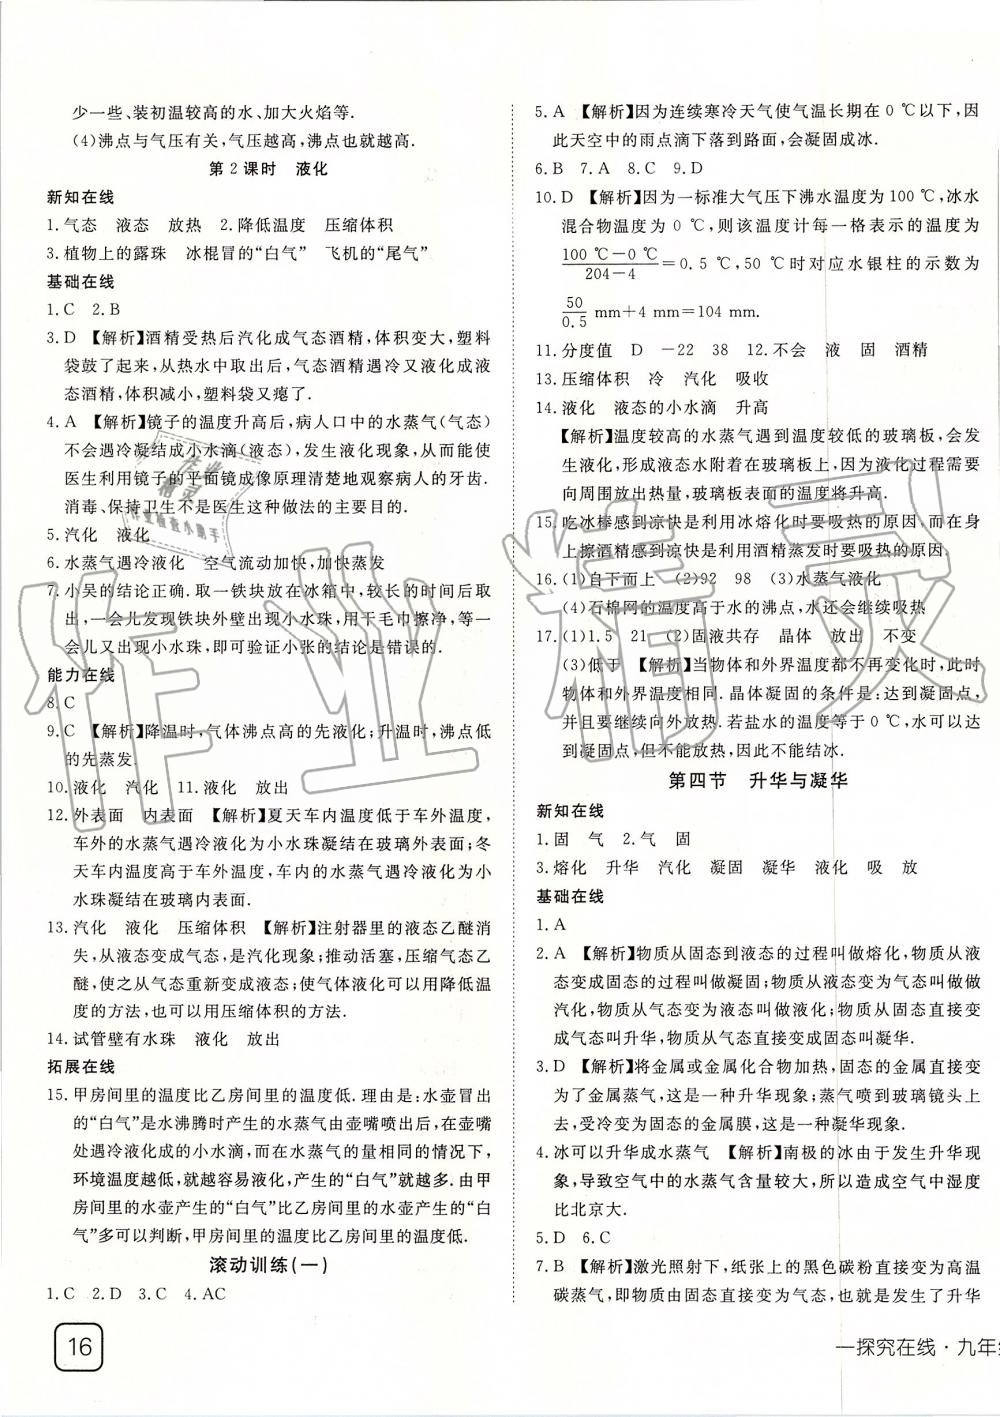 少一些、装初温较高的水、加大火焰等.
(4)沸点与气压有关,气压越高,沸点也就越高.
第2课时 液化
新知在线
1.气态 液态 放热 2.降低温度 压缩体积
3.植物上的露珠 冰棍冒的“白气” 飞机的“尾气”
基础在线
1.C 2.B
3.D 【解析】酒精受热后汽化成气态酒精,体积变大,塑料
袋鼓了起来,从热水中取出后,气态酒精遇冷又液化成液
态酒精,体积减小,塑料袋又瘪了.
4.A 【解析】镜子的温度升高后,病人口中的水蒸气(气态)
不会遇冷凝结成小水滴(液态),发生液化现象,从而能使
医生利用镜子的平面镜成像原理清楚地观察病人的牙齿.
消毒、保持卫生不是医生这种做法的主要目的.
5.汽化 液化
6.水蒸气遇冷液化 空气流动加快,加快蒸发
7.小吴的结论正确.取一铁块放在冰箱中,较长的时间后取
出,一会儿发现铁块外壁出现小水珠,用干毛巾擦净,等一
会儿又出现小水珠,即可验证小张的结论是错误的.
能力在线
8.C
9.C 【解析】降温时,气体沸点高的先液化;升温时,沸点低
的先蒸发.
10.液化 汽化 11.液化 放出
12.外表面 内表面 【解析】夏天车内温度低于车外温度,
车外的水蒸气遇冷液化为小水珠凝结在玻璃外表面;冬
天车内温度高于车外温度,车内的水蒸气遇冷液化为小
水珠凝结在玻璃内表面.
13.汽化 液化 压缩体积 【解析】注射器里的液态乙醚消
失,从液态变成气态,是汽化现象;推动活塞,压缩气态乙
醚,使之从气态重新变成液态;使气体液化可以用降低温
度的方法,也可以用压缩体积的方法.
14.试管壁有水珠 液化 放出
拓展在线
15.甲房间里的温度比乙房间里的温度低.理由是:水壶冒出
的“白气”是水沸腾时产生的水蒸气由壶嘴喷出后,在壶嘴
处遇冷液化成的小水滴,而在水蒸气的量相同的情况下,
环境温度越低,就越容易液化,产生的“白气”就越多.由甲
房间里的水壶产生的“白气”比乙房间里的水壶产生的“白
气”多可以判断,甲房间里的温度比乙房间里的温度低.
滚动训练(一)
1.C 2.D 3.C 4.AC
5.A 【解析】因为连续寒冷天气使气温长期在0 ℃以下,因
此天空中的雨点滴下落到路面,会凝固成冰.
6.B 7.A 8.C 9.D
10.D 【解析】因为一标准大气压下沸水温度为100 ℃,冰水
混合物温度为0 ℃,则该温度计每一格表示的温度为
100 ℃-0 ℃/204-4=0.5 ℃,50 ℃时对应水银柱的示数为
50/0.5 mm+4 mm=104 mm.
11.分度值 D -22 38 12.不会 液 固 酒精
13.压缩体积 冷 汽化 吸收
14.液化 液态的小水滴 升高
【解析】温度较高的水蒸气遇到温度较低的玻璃板,会发
生液化,形成液态水附着在玻璃板上,因为液化过程需要
向周围放出热量,玻璃板表面的温度将升高.
15.吃冰棒感到凉快是利用冰熔化时要吸热的原因,而在身
上擦酒精感到凉快是利用酒精蒸发时要吸热的原因.
16.(1)自下而上 (2)92 98 (3)水蒸气液化
(4)石棉网的温度高于水的沸点,水还会继续吸热
17.(1)1.5 21 (2)固液共存 晶体 放出 不变
(3)低于 【解析】当物体和外界温度都不再变化时,此时
物体和外界温度相同.晶体凝固的条件是:达到凝固点,
并且要继续向外放热.若盐水的温度等于0 ℃,水可以达
到凝固点,但不能放热,因此不能结冰.
第四节 升华与凝华
新知在线
1.固 气 2.气 固
3.熔化 升华 汽化 凝固 凝华 液化 吸 放
基础在线
1.A
2.A 【解析】物质从固态到液态的过程叫做熔化,物质从液
态变成固态的过程叫做凝固;物质从液态变为气态叫做做
汽化,物质从气态变为液态叫做液化;物质从固态直接变
成气态叫升华,物质从气态直接变成固态叫凝华.
3.D 【解析】将金属或金属化合物加热,固态的金属直接变
为蒸气,这是一种升华现象;蒸气喷到玻璃镜头上
去,受冷变为固态的金属膜,这是一种凝华现象.
4.冰可以升华成水蒸气 【解析】南极的冰由于发生升华现
象,导致空气中的水蒸气含量较大,所以造成空气中湿度
比北京大.
5.D 6.C
7.B 【解析】激光照射下,纸张上的黑色碳粉直接变为高温
碳蒸气,即物质由固态直接变为气态,也就是发生了升华
16
一探究在线·九年
作业精灵
作业检查小助手